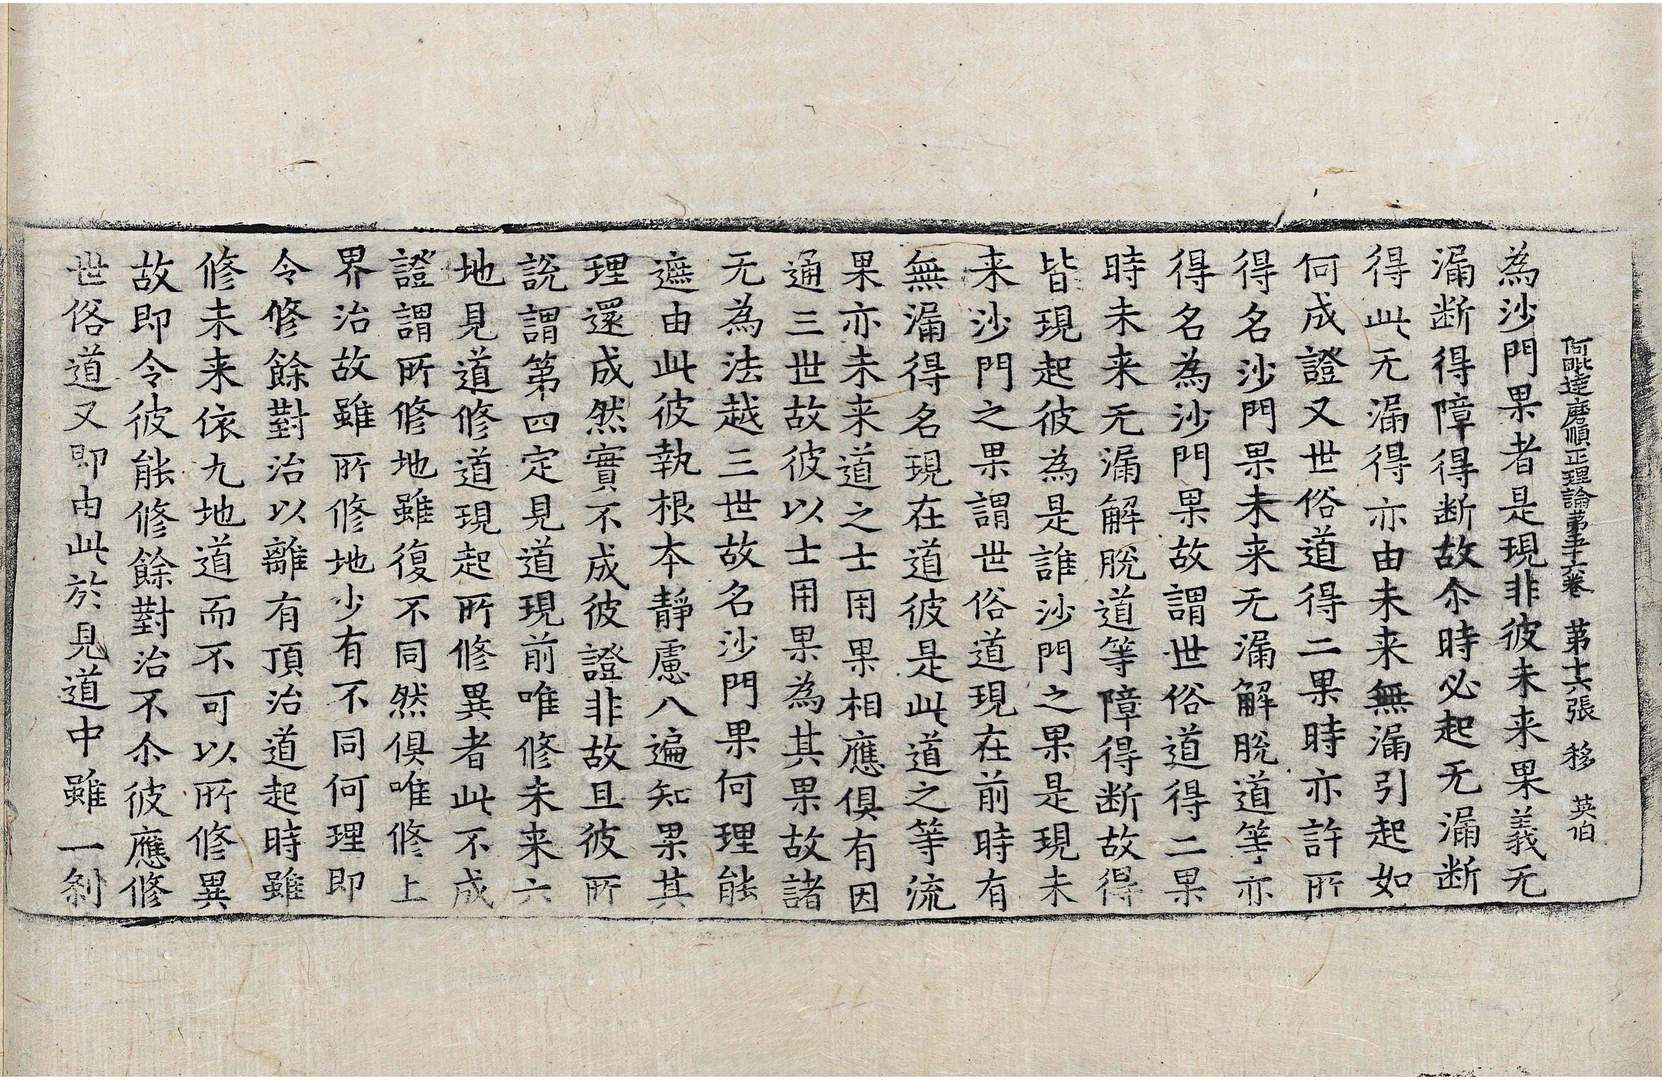 阿毗達磨順正理論第五十六卷 第十六張 移 英伯
為沙門果者是現非彼未来果義无
漏断得障得断故尒時必起无漏断
得此无漏得亦由未来無漏引起如
何成證又世俗道得二果時亦許所
得名沙門果未来无漏解脫道等亦
得名為沙門果故謂世俗道得二果
時未来无漏解脫道等障得断故得
皆現起彼為是誰沙門之果是現未
来沙門之果謂世俗道現在前時有
無漏得名現在道彼是此道之等流
果亦未来道之士用果相應俱有因
通三世故彼以士用果為其果故諸
无為法越三世故名沙門果何理能
遮由此彼執根本靜慮八遍知果其
理還成然實不成彼證非故且彼所
說謂第四定見道現前唯修未来六
地見道修道現起所修異者此不成
證謂所修地雖復不同然俱唯修上
界治故雖所修地少有不同何理即
令修餘對治以離有頂治道起時雖
修未来依九地道而不可以所修異
故即令彼能修餘對治不尒彼應修
世俗道又即由此於見道中雖一剎